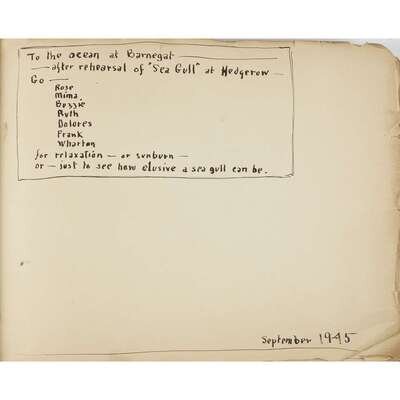 To the ocean at Barnegat —
— after rehearsal of "Sea Gull" at Hedgerow —
Go —
Rose
Mima,
Bessie
Ruth
Dolores
Frank
Wharton
for relaxation — or sunburn —
or — just to see how elusive a sea gull can be.
September 1945